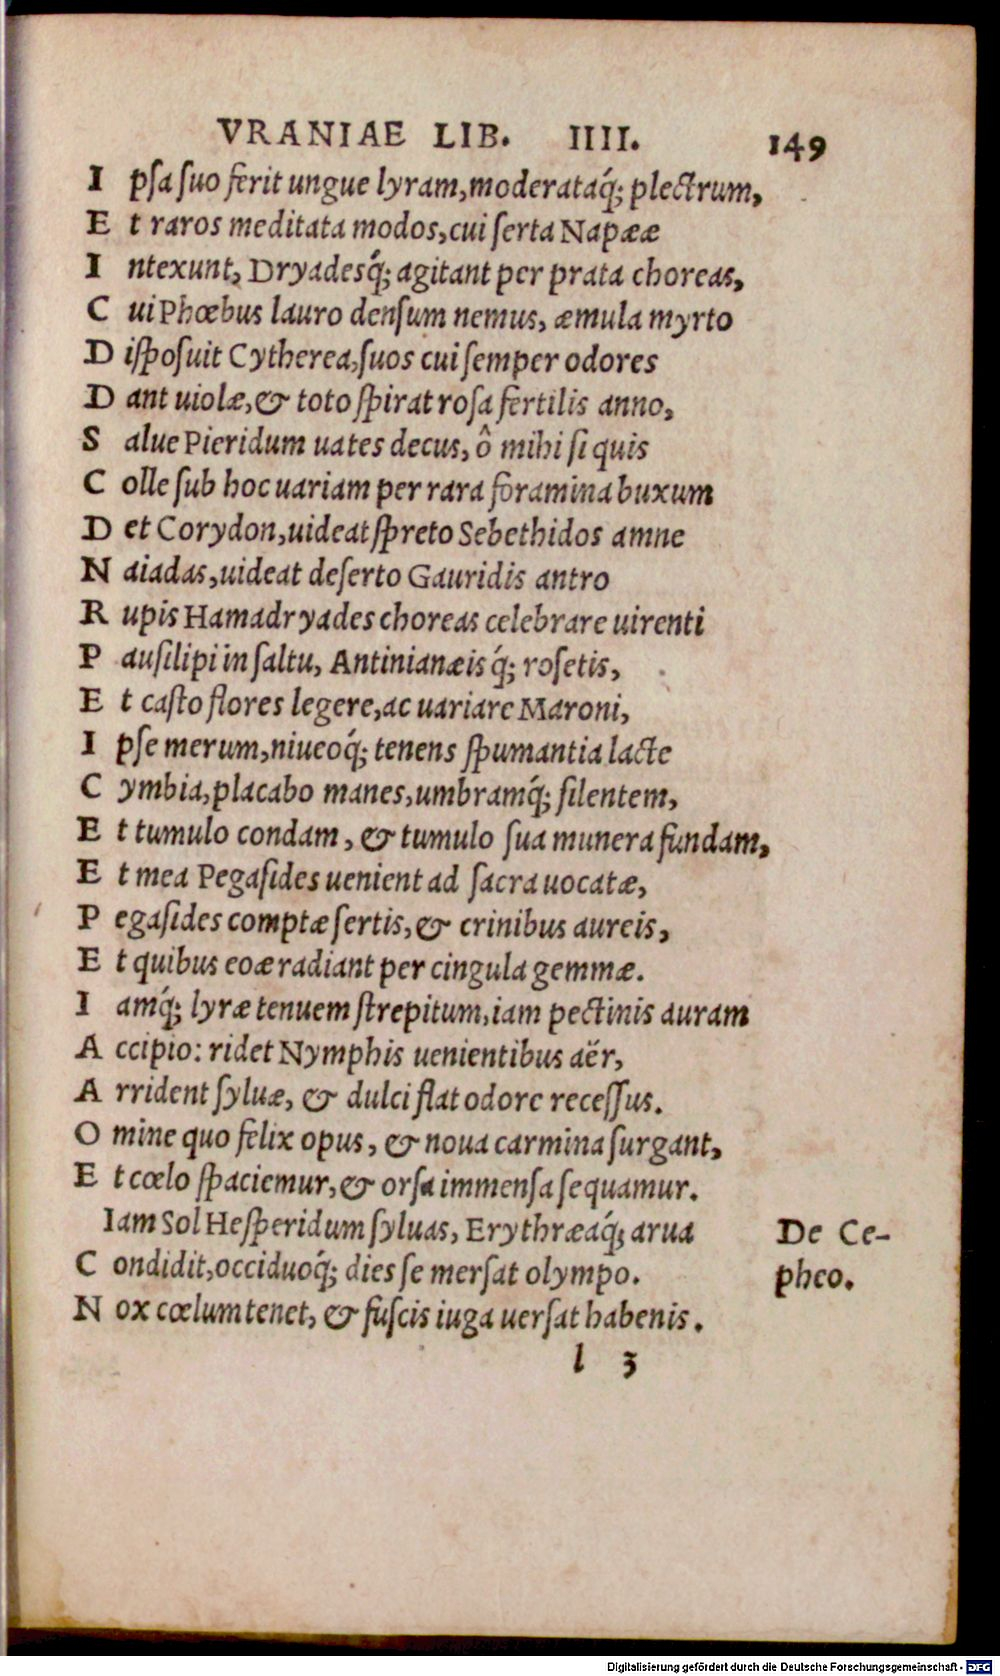 VRANIAE LIB. IIII. 149
I psa ſuo ferit ungue lyram, moderataq́; plectrum,
E t raros meditata modos, cui ſerta Napææ
I ntexunt, Dryadesq́; agitant per prata choreas,
C ui Phœbus lauro denſum nemus, æmula myrto
D iſpoſuit Cytherea, ſuos cui ſemper odores
D ant uiolæ, & toto ſpirat roſa fertilis anno,
S alue Pieridum uates decus, ô mihi ſi quis
C olle ſub hoc uariam per rara foramina buxum
D et Corydon, uideat ſpreto Sebethidos amne
N aiadas, uideat deſerto Gauridis antro
R upis Hamadryades choreas celebrare uirenti
P auſilipi in ſaltu, Antinianæisq́; roſetis,
E t caſto flores legere, ac uariare Maroni,
I pſe merum, niueoq́; tenens ſpumantia lacte
C ymbia, placabo manes, umbramq́; ſilentem,
E t tumulo condam, & tumulo ſua munera fundam,
E t mea Pegaſides uenient ad ſacra uocatæ,
P egaſides comptæ ſertis, & crinibus aureis,
E t quibus eoæ radiant per cingula gemmæ.
I amq́; lyræ tenuem ſtrepitum, iam pectinis auram
A ccipio: ridet Nymphis uenientibus aër,
A rrident ſyluæ, & dulci flat odore receſſus.
O mine quo felix opus, & noua carmina ſurgant,
E t cœlo ſpaciemur, & orſa immenſa ſequamur.
Iam Sol Heſperidum ſyluas, Erythræaq́; arua De Ce-
C ondidit, occiduoq́; dies ſe merſat olympo. pheo.
N ox cœlum tenet, & fuſcis iuga uerſat habenis.
l 3
Digitalisierung gefördert durch die Deutsche Forschungsgemeinschaft - DFG